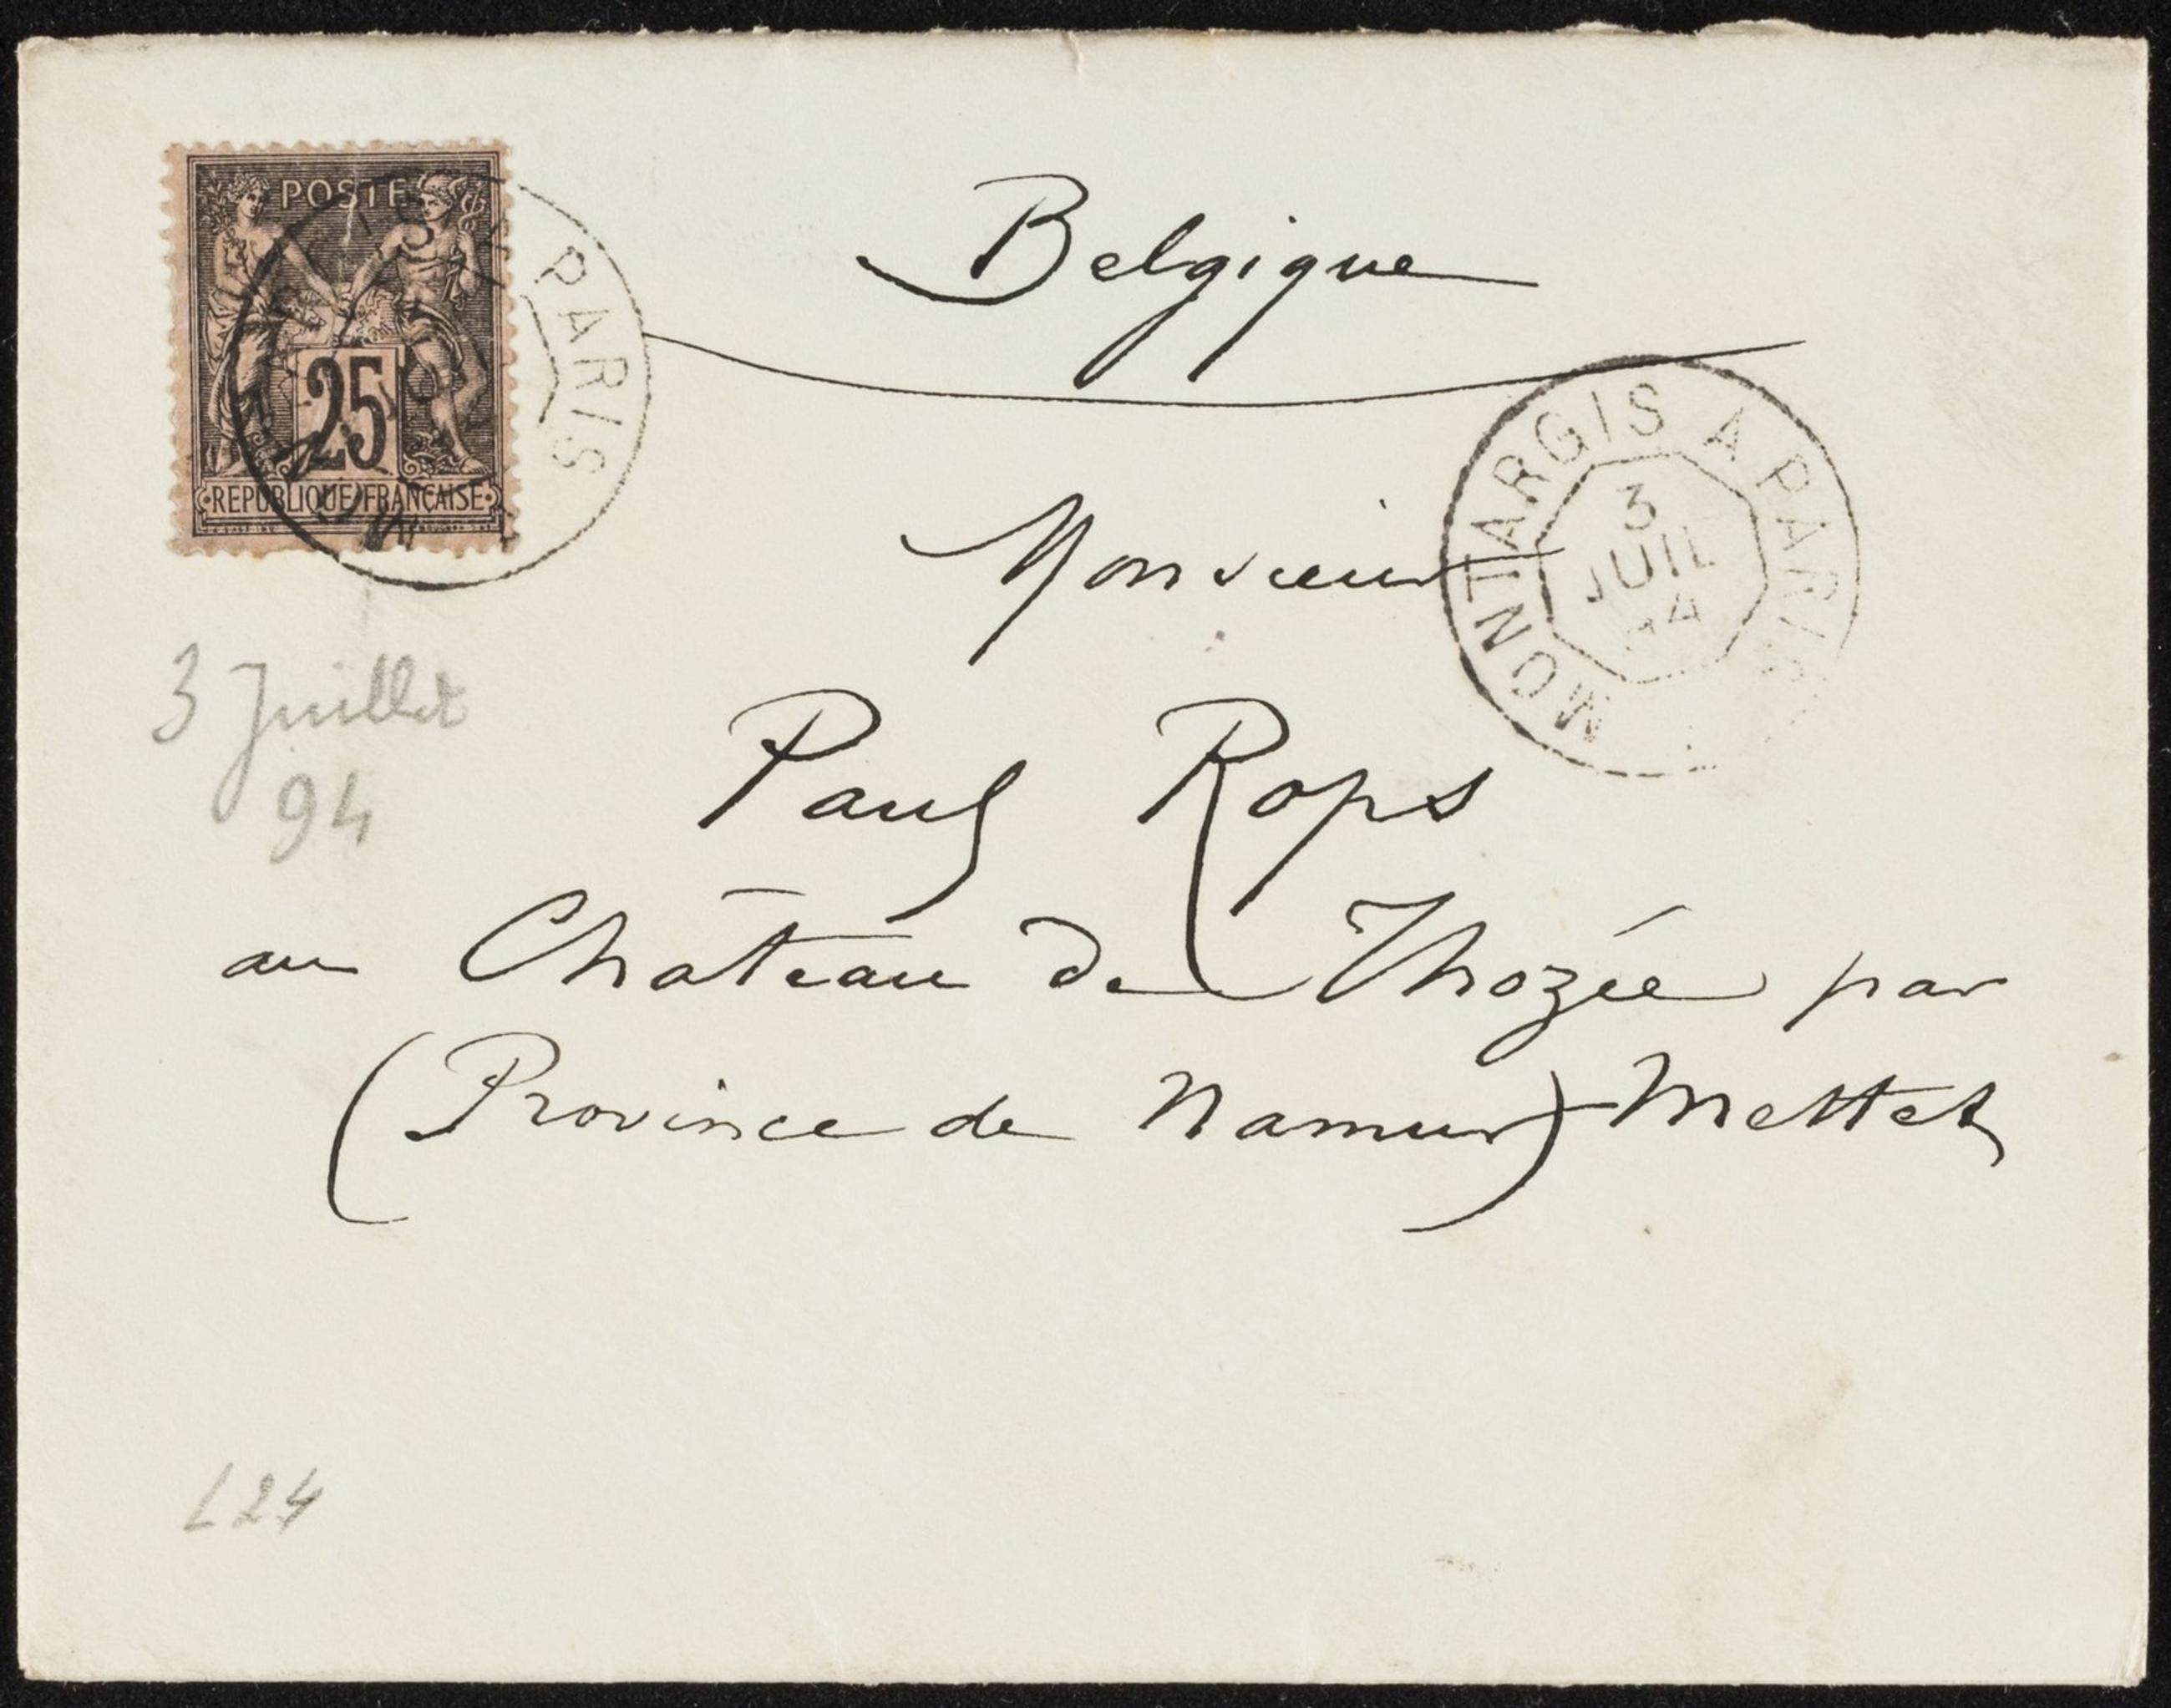 POSTE
25
REPUBLIQUE FRANÇAISE
PARIS
Belgique
MONTARGIS A PARIS
3
JUIL
94
Monsieur
3 Juillet
94
Paul Rops
au Château de Thozée par
(Province de Namur) Mettet
L24